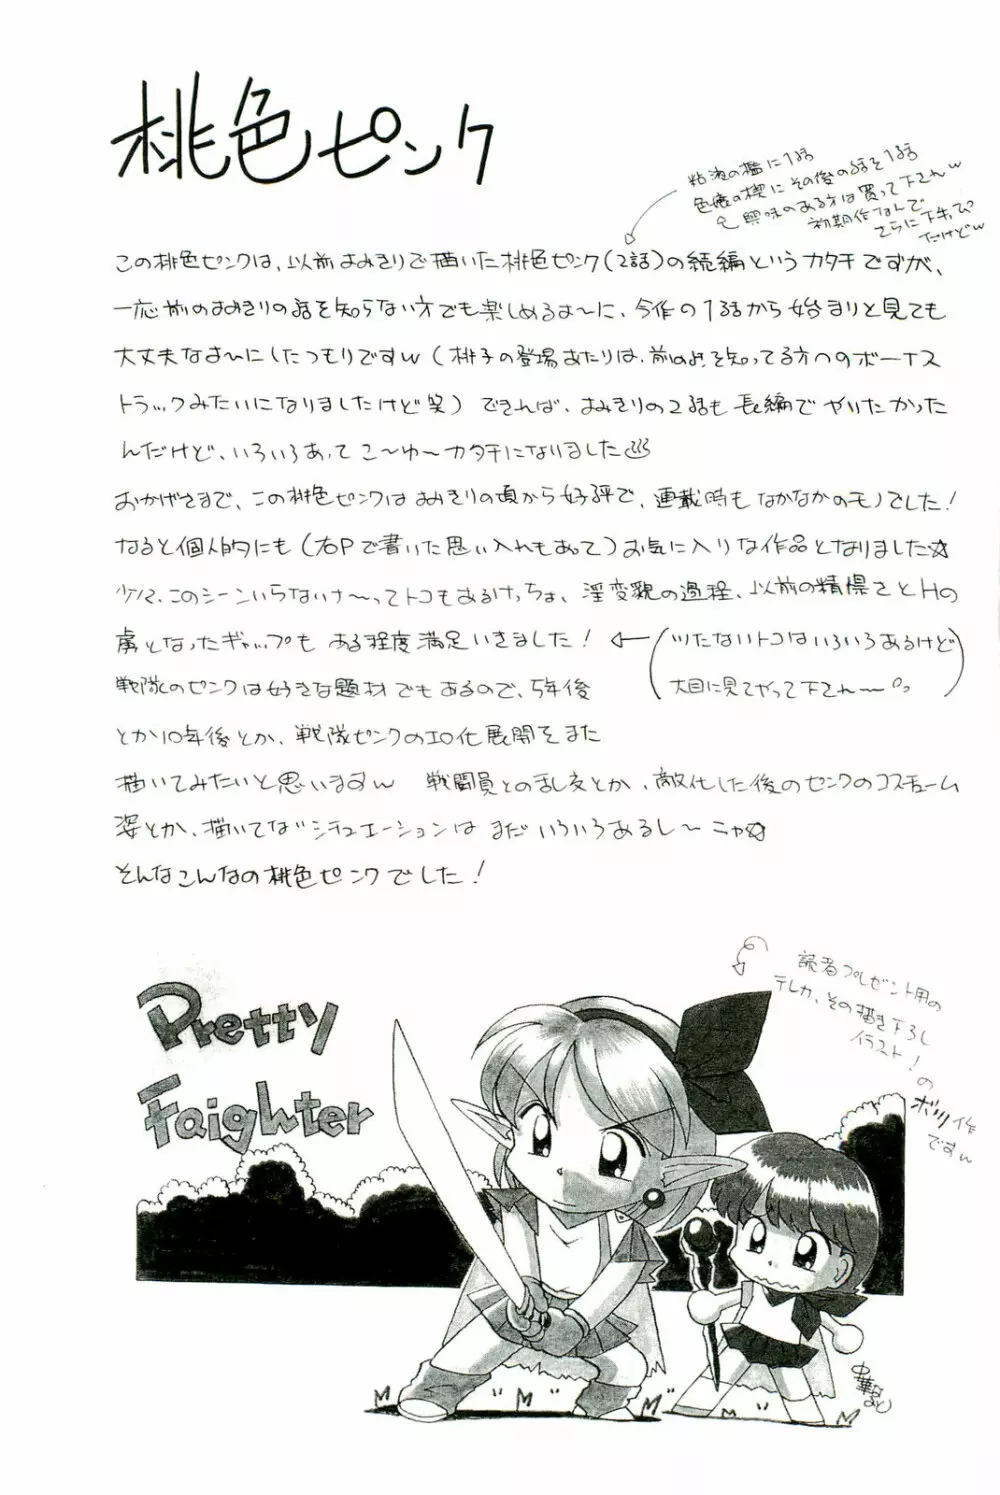 桃色ピンク
粘液の檻に1話
色痕の楔にその後の話を1話
興味のある方は買って下さいw
初期作なんで
さらに下手っぴ
だけどw
この桃色ピンクは、以前よみきりで描いた桃色ピンク(2話)の続編というカタチですが、
一応前のよみきりの話を知らない方でも楽しめるよ〜に、今作の1話から始まりと見ても
大丈夫なよ〜にしたつもりですw(桃子の登場あたりは、前のを知ってる方へのボーナス
トラックみたいになりましたけど笑)できれば、よみきりの2話も長編でやりたかった
んだけど、いろいろあってこ〜ゆ〜カタチになりました
おかげさまで、この桃色ピンクはよみきりの頃から好評で、連載時もなかなかのモノでした!
なると個人的にも(右Pで書いた思い入れもあって)お気に入りな作品となりました☆
少々、このシーンいらないナ〜ってトコもあるけっちょ、淫変貌の過程、以前の精悍さとHの
虜となったギャップもある程度満足いきました!
ツたないトコはいろいろあるけど
大目に見てやって下さい〜
戦隊のピンクは好きな題材でもあるので、5年後
とか10年後とか、戦隊ピンクのエロ化展開をまた
描いてみたいと思いますw 戦闘員との乱交とか、敵化した後のピンクのコスチューム
姿とか、描いてないシチュエーションはまだいろいろあるし〜ニャ☆
そんなこんなの桃色ピンクでした!
読者プレゼント用の
テレカ、その描き下ろし
イラスト!
の
ボツ作
ですw
Pretty
Faighter
中華なると